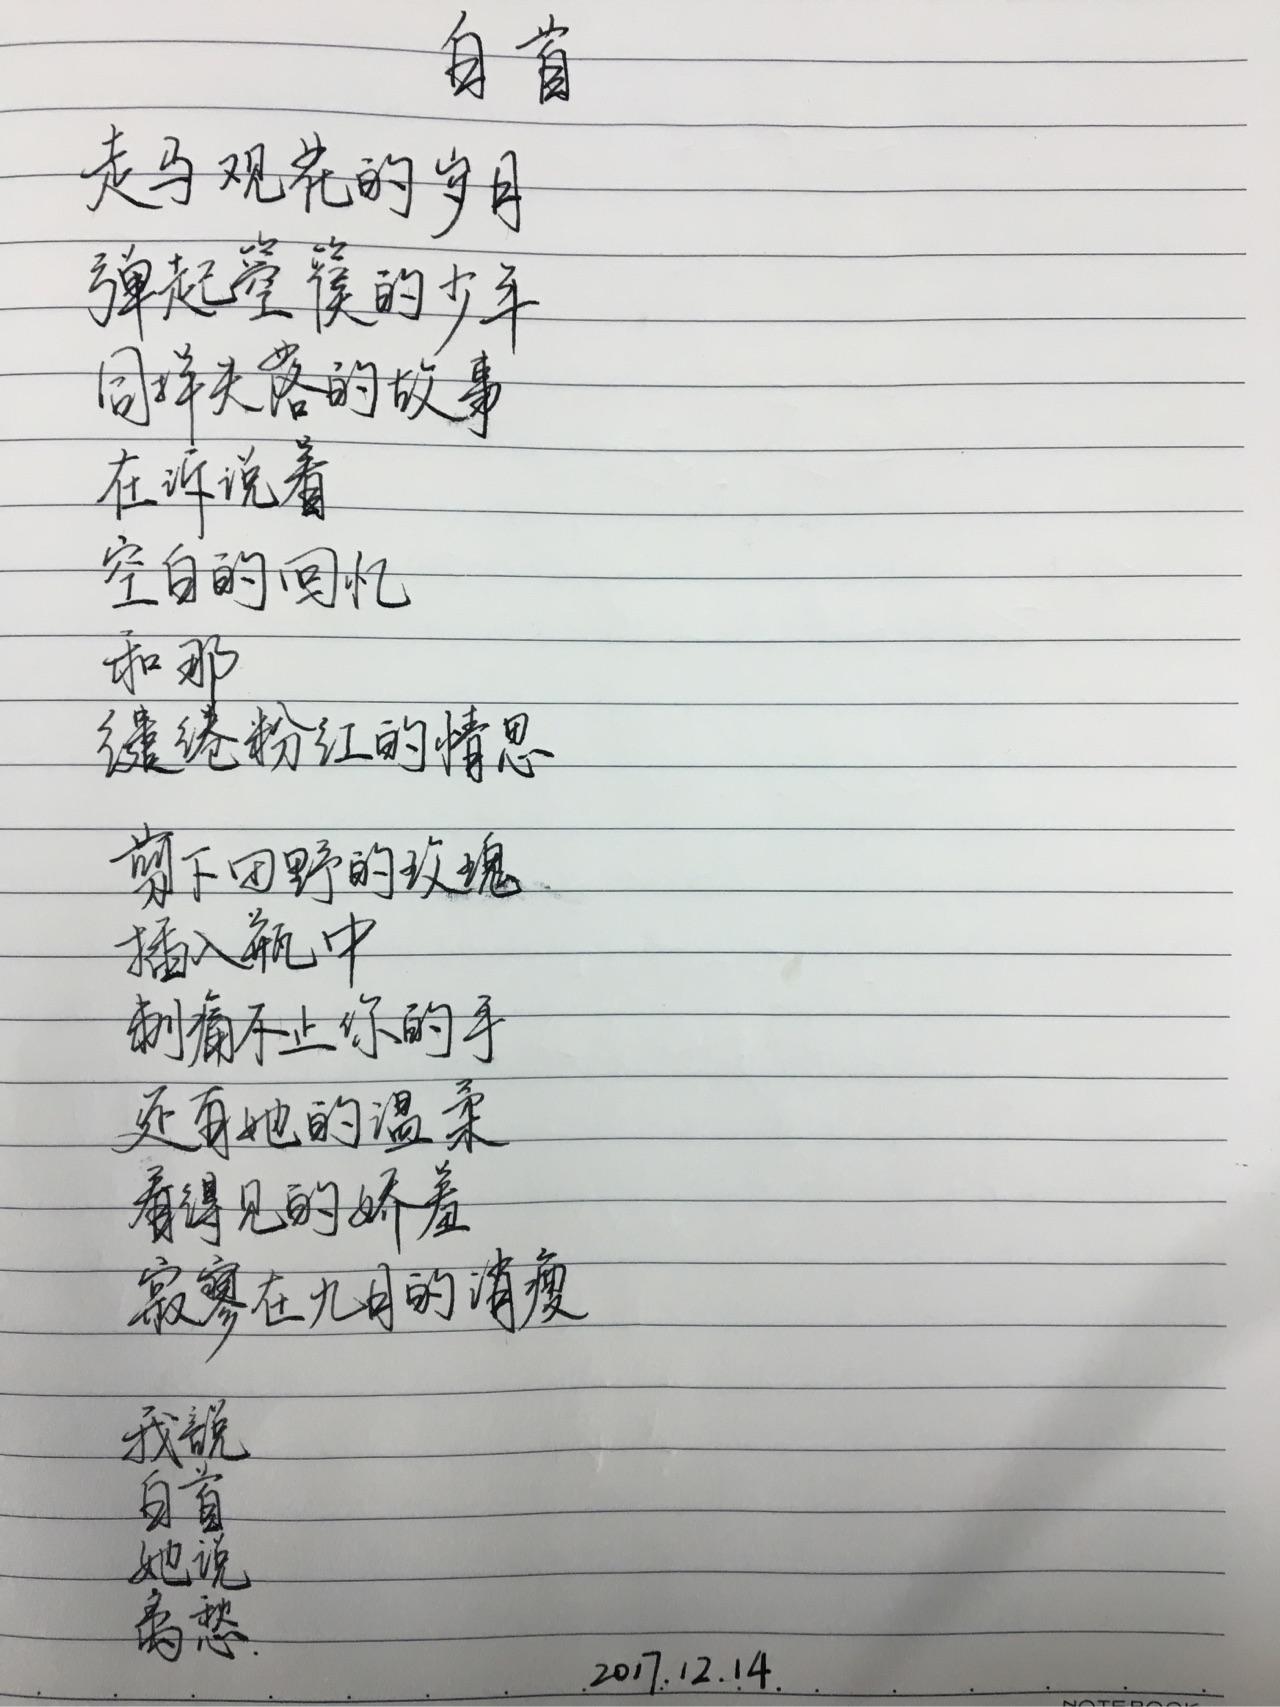 白首
走马观花的岁月
弹起箜篌的少年
同样失落的故事
在诉说着
空白的回忆
和那
缱绻粉红的情思
剪下田野的玫瑰
插入瓶中
刺痛不止你的手
还有她的温柔
看得见的娇羞
寂寥在九月的消瘦
我說
白首
她说
离愁.
2017.12.14
NOTEBOOK